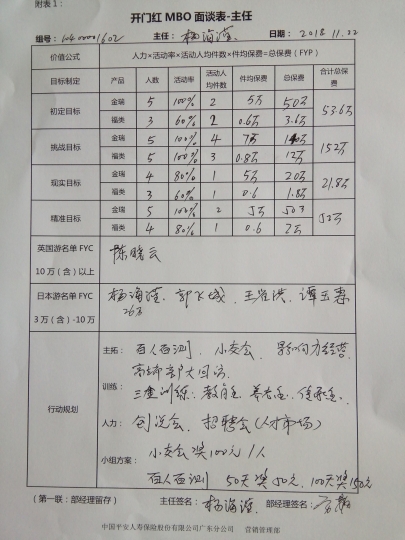 附表1：
开门红 MBO 面谈表-主任
组号： 主任：杨海滢 日期：2018.11.22
价值公式 人力×活动率×活动人均件数×件均保费=总保费（FYP）
目标制定 产品 人数 活动率 活动人均件数 件均保费 总保费 合计总保费
初定目标 金瑞 5 100% 2 5万 50万 53.6万
福类 3 60% 2 0.6万 3.6万
挑战目标 金瑞 5 100% 4 7万 140万 152万
福类 5 100% 3 0.8万 12万
现实目标 金瑞 4 80% 1 5万 20万 21.8万
福类 3 60% 1 0.6 1.8万
精准目标 金瑞 5 100% 2 5万 50万 52万
福类 4 80% 1 0.6 2万
英国游名单 FYC 10万（含）以上 陈晓云
日本游名单 FYC 3万（含）-10万 杨海滢、郭飞城、王 洪、谭玉
26万
行动规划
主拓：百人百测、小交会、影响力经营、
高端部大回访
训练：三金训练：教育金、养老金、传承金。
人力：创说会、招聘会（人才市场）
小组方案：小交会奖100元/人
百人百测 50天奖50元，100天奖150元
（第一联：部经理留存） 主任签名：杨海滢 部经理签名：
中国平安人寿保险股份有限公司广东分公司 营销管理部